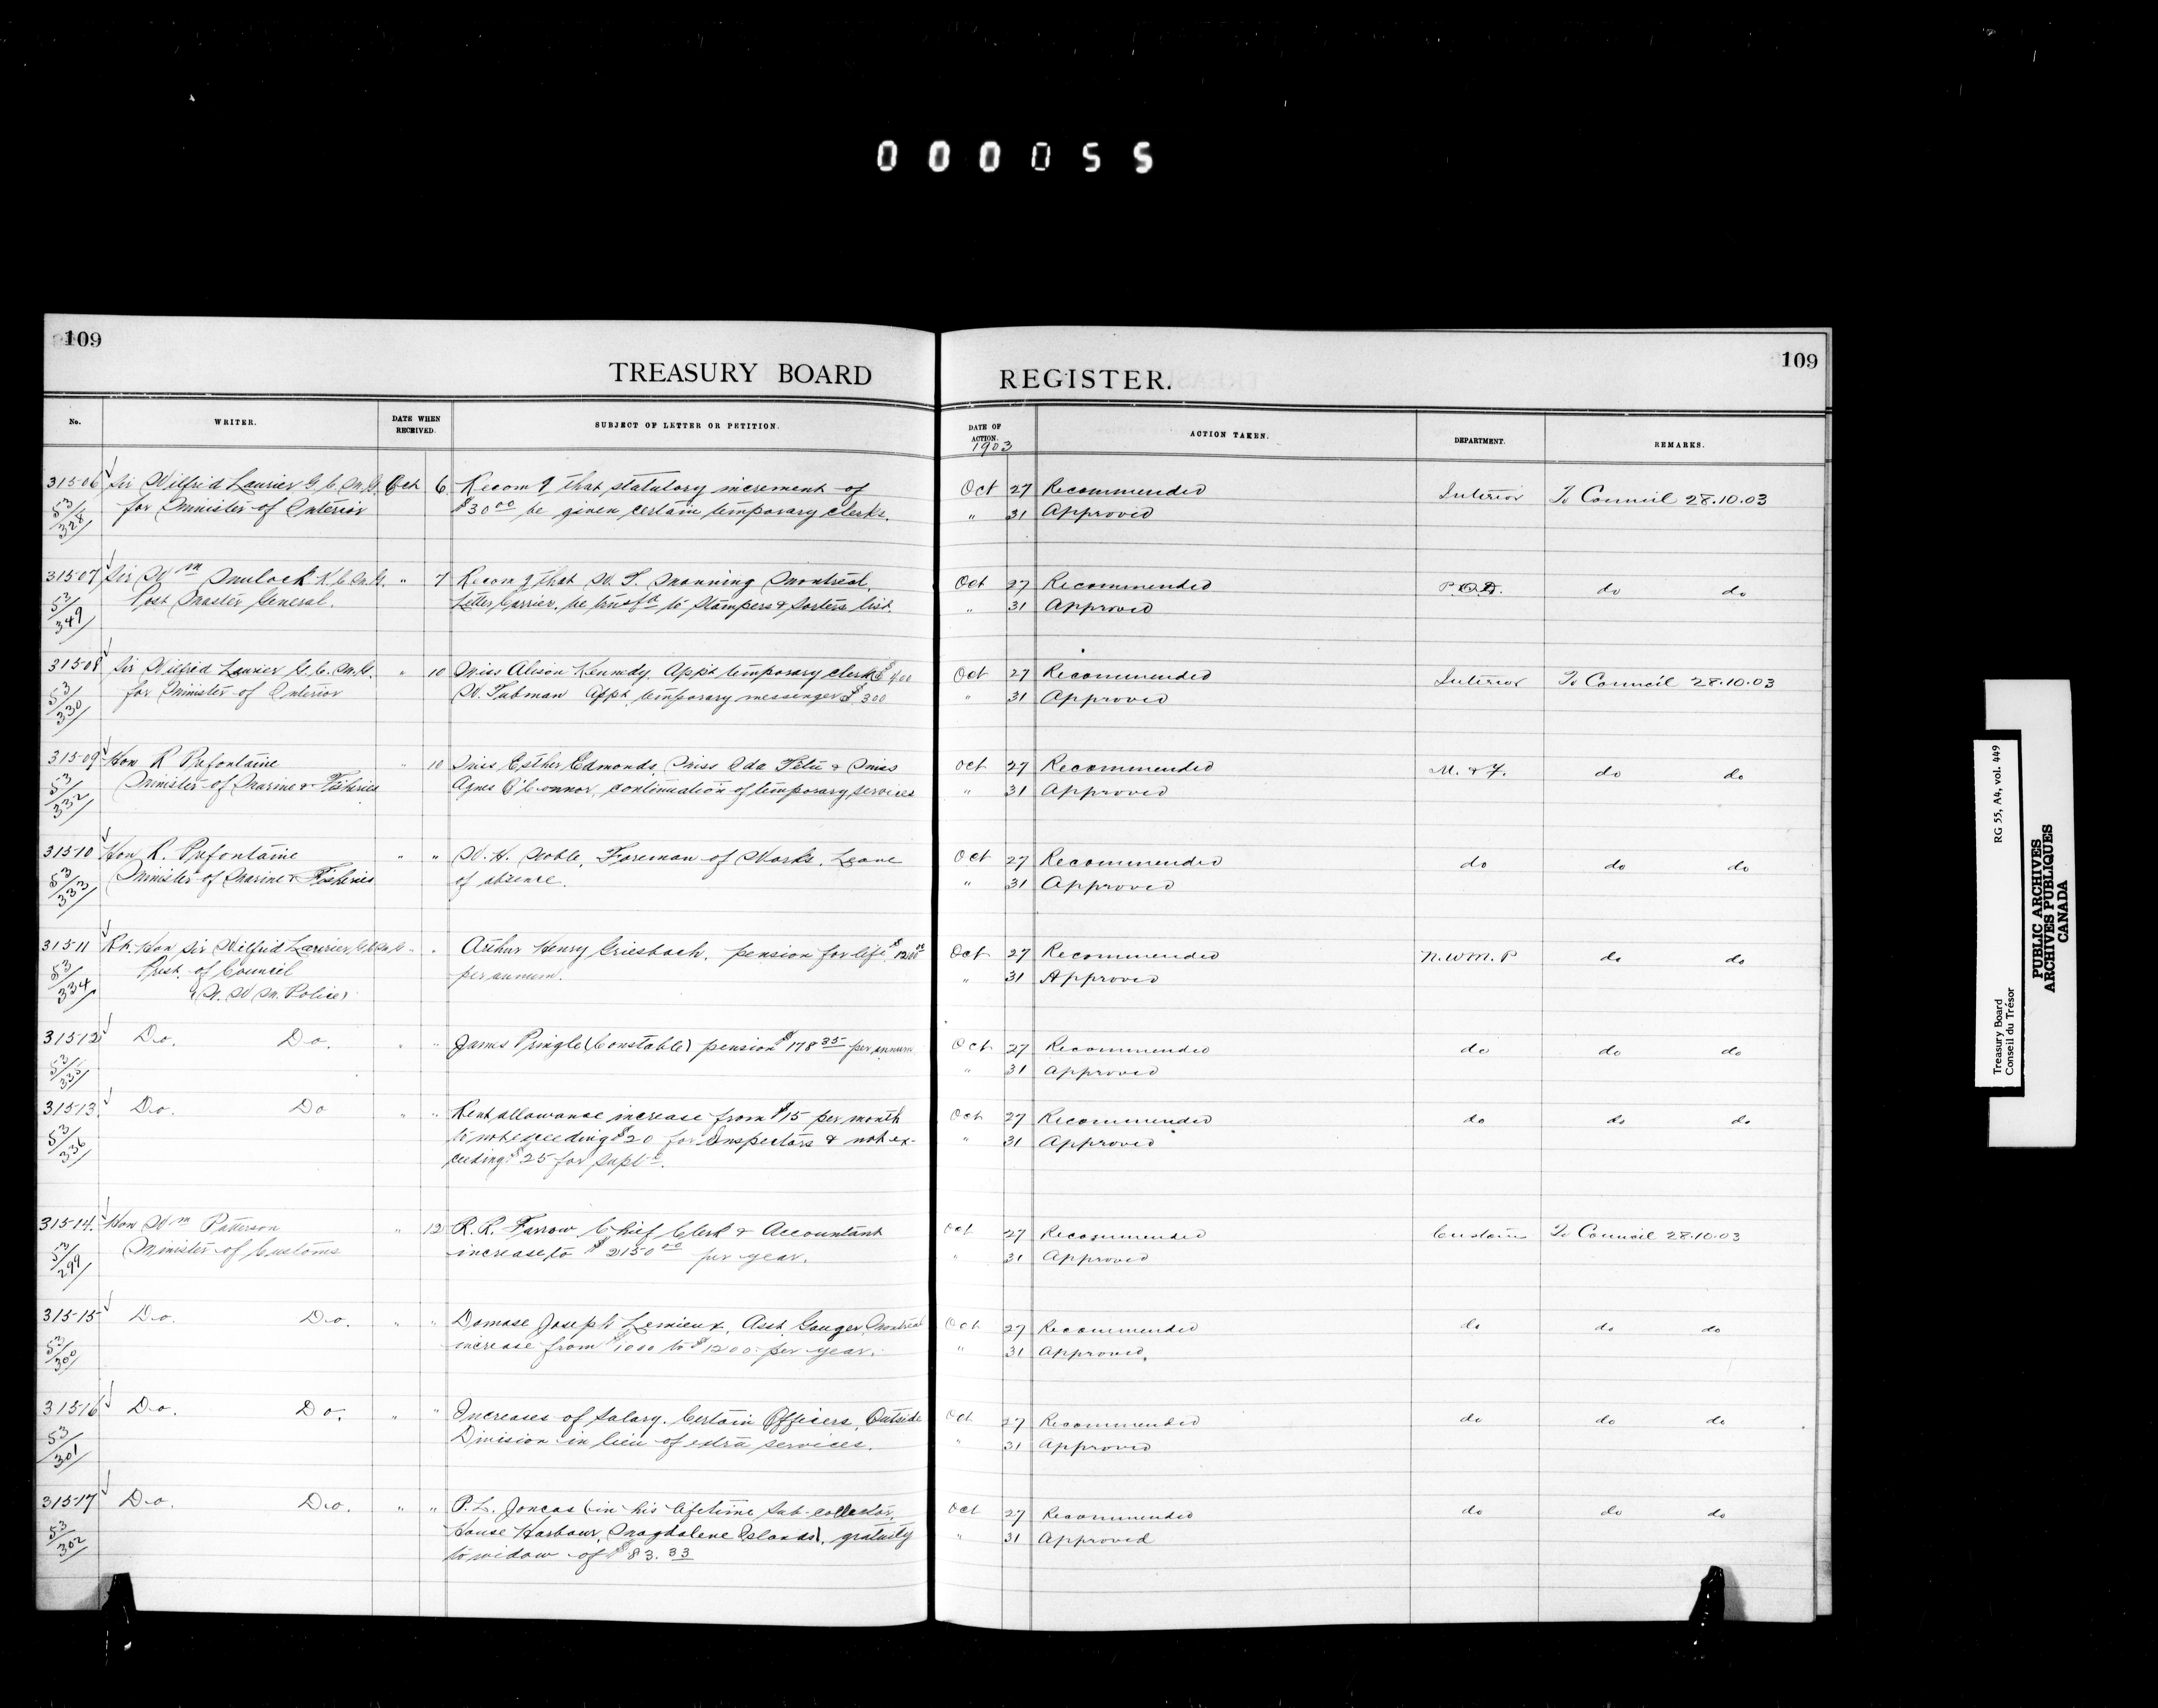 000055
109
TREASURY BOARD REGISTER.
109
No. WRITER. DATE WHEN RECEIVED. SUBJECT OF LETTER OR PETITION. DATE OF ACTION. 1903 ACTION TAKEN. DEPARTMENT. REMARKS.
31506 Sir Wilfrid Laurier G.C.M.G. Oct 6 Recom g that statutory increment of Oct 27 Recommended Interior To Council 28.10.03
53/328 for Minister of Interior $30 00 be given certain temporary clerks. " 31 Approved
31507 Sir Wm Mulock K.C.M.G. " 7 Recom g that W. T. Manning Montreal, Oct 27 Recommended P.O.D. do do
53/349 Post Master General. Letter Carrier, be transfd to Stampers & Sorters list. " 31 Approved
31508 Sir Wilfrid Laurier G.C.M.G. " 10 Miss Alison Kennedy, App't temporary clerk $400 Oct 27 Recommended Interior To Council 28.10.03
53/330 for Minister of Interior W. Tubman App't temporary messenger $300 " 31 Approved
31509 Hon R Prefontaine " 10 Miss Esther Edmonds, Miss Ida Tetu & Miss Oct 27 Recommended M. & F. do do
53/332 Minister of Marine & Fisheries Agnes O'Connor, continuation of temporary services " 31 Approved
31510 Hon R. Prefontaine " " W. H. Noble, Foreman of Works, Leave Oct 27 Recommended do do do
53/333 Minister of Marine & Fisheries of absence. " 31 Approved
31511 Rt. Hon Sir Wilfrid Laurier, G.C.M.G. " " Arthur Henry Griesbach, pension for life $1200 00 Oct 27 Recommended N.W.M.P do do
53/334 Prest. of Council per annum. " 31 Approved
(N. W M. Police)
31512 Do. Do. " " James Pringle (Constable) pension $178 35 per annum Oct 27 Recommended do do do
53/335 " 31 Approved
31513 Do. Do " " Rent allowance increase from $15 per month Oct 27 Recommended do do do
53/336 to not exceeding $20 for Inspectors & not ex- " 31 Approved
ceeding $25 for Supts.
31514. Hon Wm Patterson " 12 R. R. Farrow Chief Clerk & Accountant Oct 27 Recommended Customs To Council 28.10.03
53/299 Minister of Customs increase to $2150 00 per year. " 31 Approved
31515 Do. Do. " " Damase Joseph Lemieux, Asst. Gauger, Montreal Oct 27 Recommended do do do
53/300 increase from $1000 to $1200 per year. " 31 Approved.
31516 Do. Do. " " Increases of Salary. Certain Officers, Outside Oct 27 Recommended do do do
53/301 Division in lieu of extra services. " 31 Approved
31517 Do. Do. " " P. L. Joncas (in his lifetime Sub-collector, Oct 27 Recommended do do do
53/302 House Harbour, Magdalene Islands), gratuity " 31 Approved
to widow of $83.33
Treasury Board RG 55, A4, vol. 449
Conseil du Trésor
PUBLIC ARCHIVES
ARCHIVES PUBLIQUES
CANADA